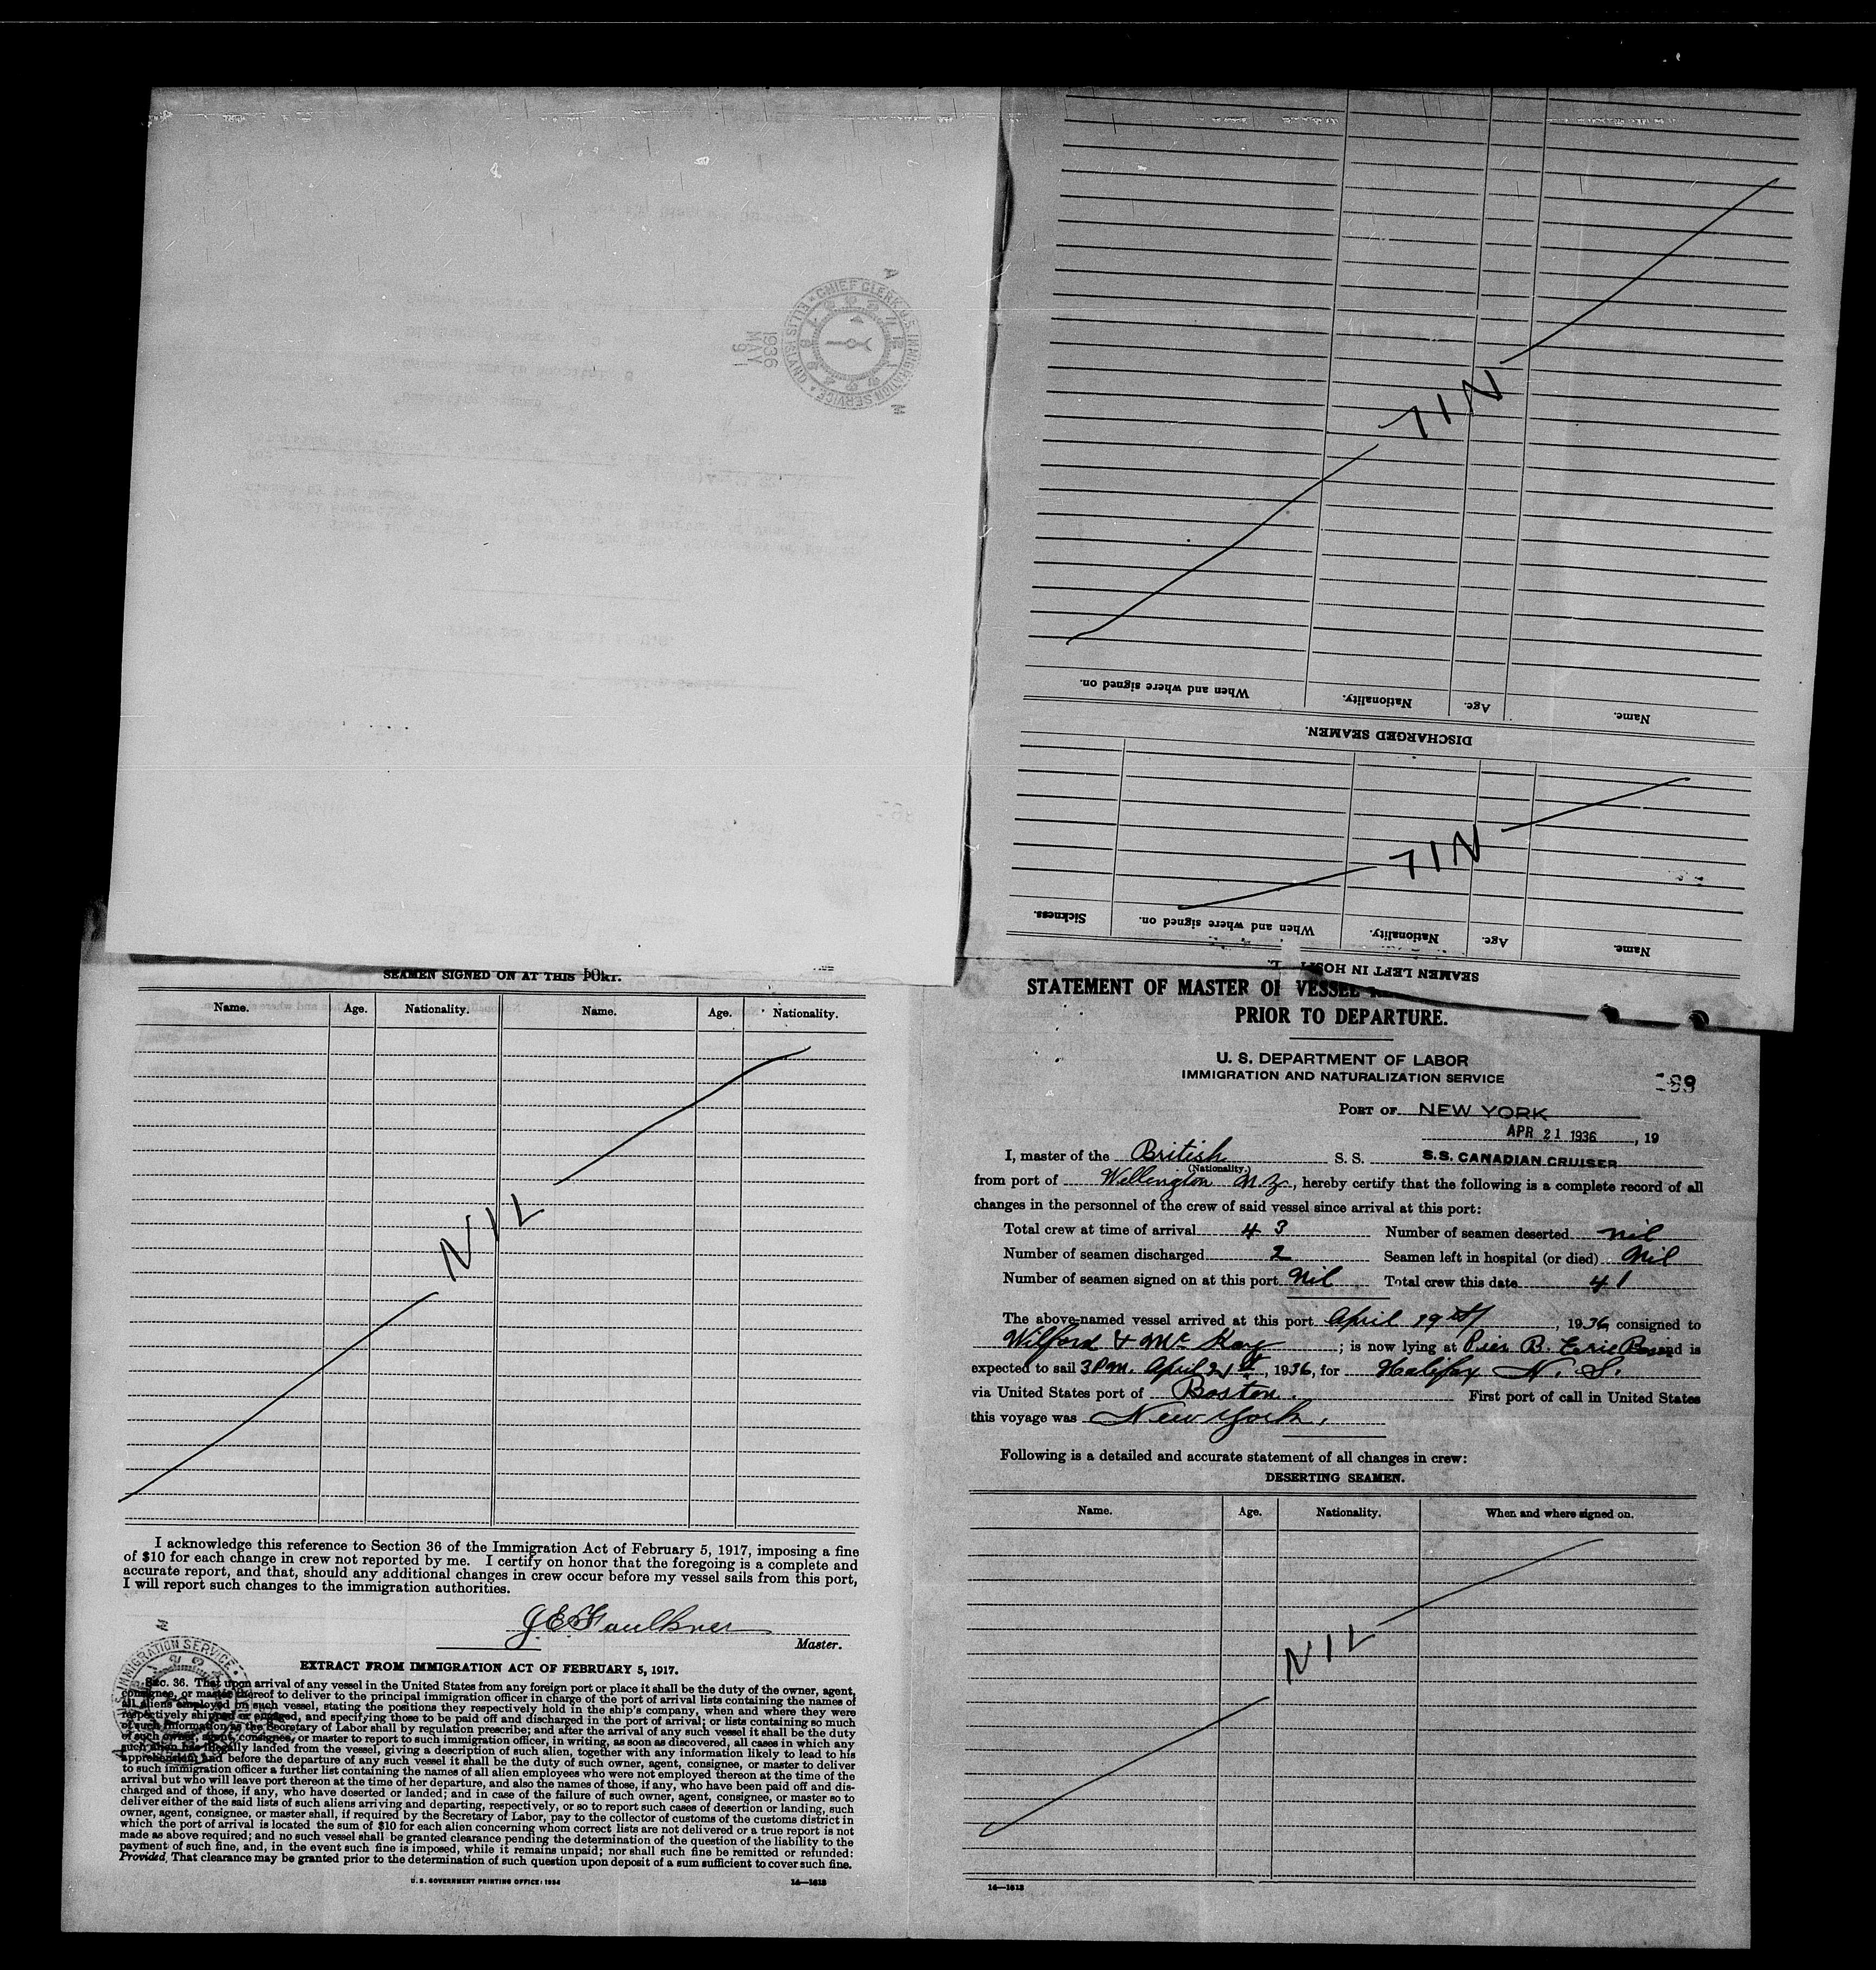 CHIEF CLERK U.S. IMMIGRATION SERVICE
ELLIS ISLAND
1936
MAY
When and where signed on.
Nationality.
Age.
Name.
DISCHARGED SEAMEN.
NIL
NIL
Sickness.
When and where signed on.
Nationality.
Age.
Name.
SEAMEN LEFT IN
SEAMEN SIGNED ON AT THIS PORT.
Name. Age. Nationality. Name. Age. Nationality.
NIL
I acknowledge this reference to Section 36 of the Immigration Act of February 5, 1917, imposing a fine
of $10 for each change in crew not reported by me. I certify on honor that the foregoing is a complete and
accurate report, and that, should any additional changes in crew occur before my vessel sails from this port,
I will report such changes to the immigration authorities.
J.E. Faulkner
Master.
IMMIGRATION SERVICE
EXTRACT FROM IMMIGRATION ACT OF FEBRUARY 5, 1917.
Sec. 36. That upon arrival of any vessel in the United States from any foreign port or place it shall be the duty of the owner, agent,
consignee, or master thereof to deliver to the principal immigration officer in charge of the port of arrival lists containing the names of
all aliens employed on such vessel, stating the positions they respectively hold in the ship's company, when and where they were
respectively shipped or engaged, and specifying those to be paid off and discharged in the port of arrival; or lists containing so much
of such information as the Secretary of Labor shall by regulation prescribe; and after the arrival of any such vessel it shall be the duty
of such owner, agent, consignee, or master to report to such immigration officer, in writing, as soon as discovered, all cases in which any
such alien has illegally landed from the vessel, giving a description of such alien, together with any information likely to lead to his
apprehension; and before the departure of any such vessel it shall be the duty of such owner, agent, consignee, or master to deliver
to such immigration officer a further list containing the names of all alien employees who were not employed thereon at the time of the
arrival but who will leave port thereon at the time of her departure, and also the names of those, if any, who have been paid off and dis-
charged and of those, if any, who have deserted or landed; and in case of the failure of such owner, agent, consignee, or master so to
deliver either of the said lists of such aliens arriving and departing, respectively, or so to report such cases of desertion or landing, such
owner, agent, consignee, or master shall, if required by the Secretary of Labor, pay to the collector of customs of the customs district in
which the port of arrival is located the sum of $10 for each alien concerning whom correct lists are not delivered or a true report is not
made as above required; and no such vessel shall be granted clearance pending the determination of the question of the liability to the
payment of such fine, and, in the event such fine is imposed, while it remains unpaid; nor shall such fine be remitted or refunded:
Provided, That clearance may be granted prior to the determination of such question upon deposit of a sum sufficient to cover such fine.
U. S. GOVERNMENT PRINTING OFFICE: 1934 14—1613
STATEMENT OF MASTER OF VESSEL
PRIOR TO DEPARTURE.
U. S. DEPARTMENT OF LABOR
IMMIGRATION AND NATURALIZATION SERVICE
PORT OF NEW YORK
APR 21 1936, 19
I, master of the British S. S. S.S. CANADIAN CRUISER
(Nationality.)
from port of Wellington N Z, hereby certify that the following is a complete record of all
changes in the personnel of the crew of said vessel since arrival at this port:
Total crew at time of arrival 43 Number of seamen deserted nil
Number of seamen discharged 2 Seamen left in hospital (or died) Nil
Number of seamen signed on at this port Nil Total crew this date 41
The above-named vessel arrived at this port April 19th, 1936 consigned to
Wilford & McKay; is now lying at Pier B. Erie Basin and is
expected to sail 3PM. April 21st, 1936, for Halifax N. S.
via United States port of Boston. First port of call in United States
this voyage was New York.
Following is a detailed and accurate statement of all changes in crew:
DESERTING SEAMEN.
Name. Age. Nationality. When and where signed on.
NIL
14—1613